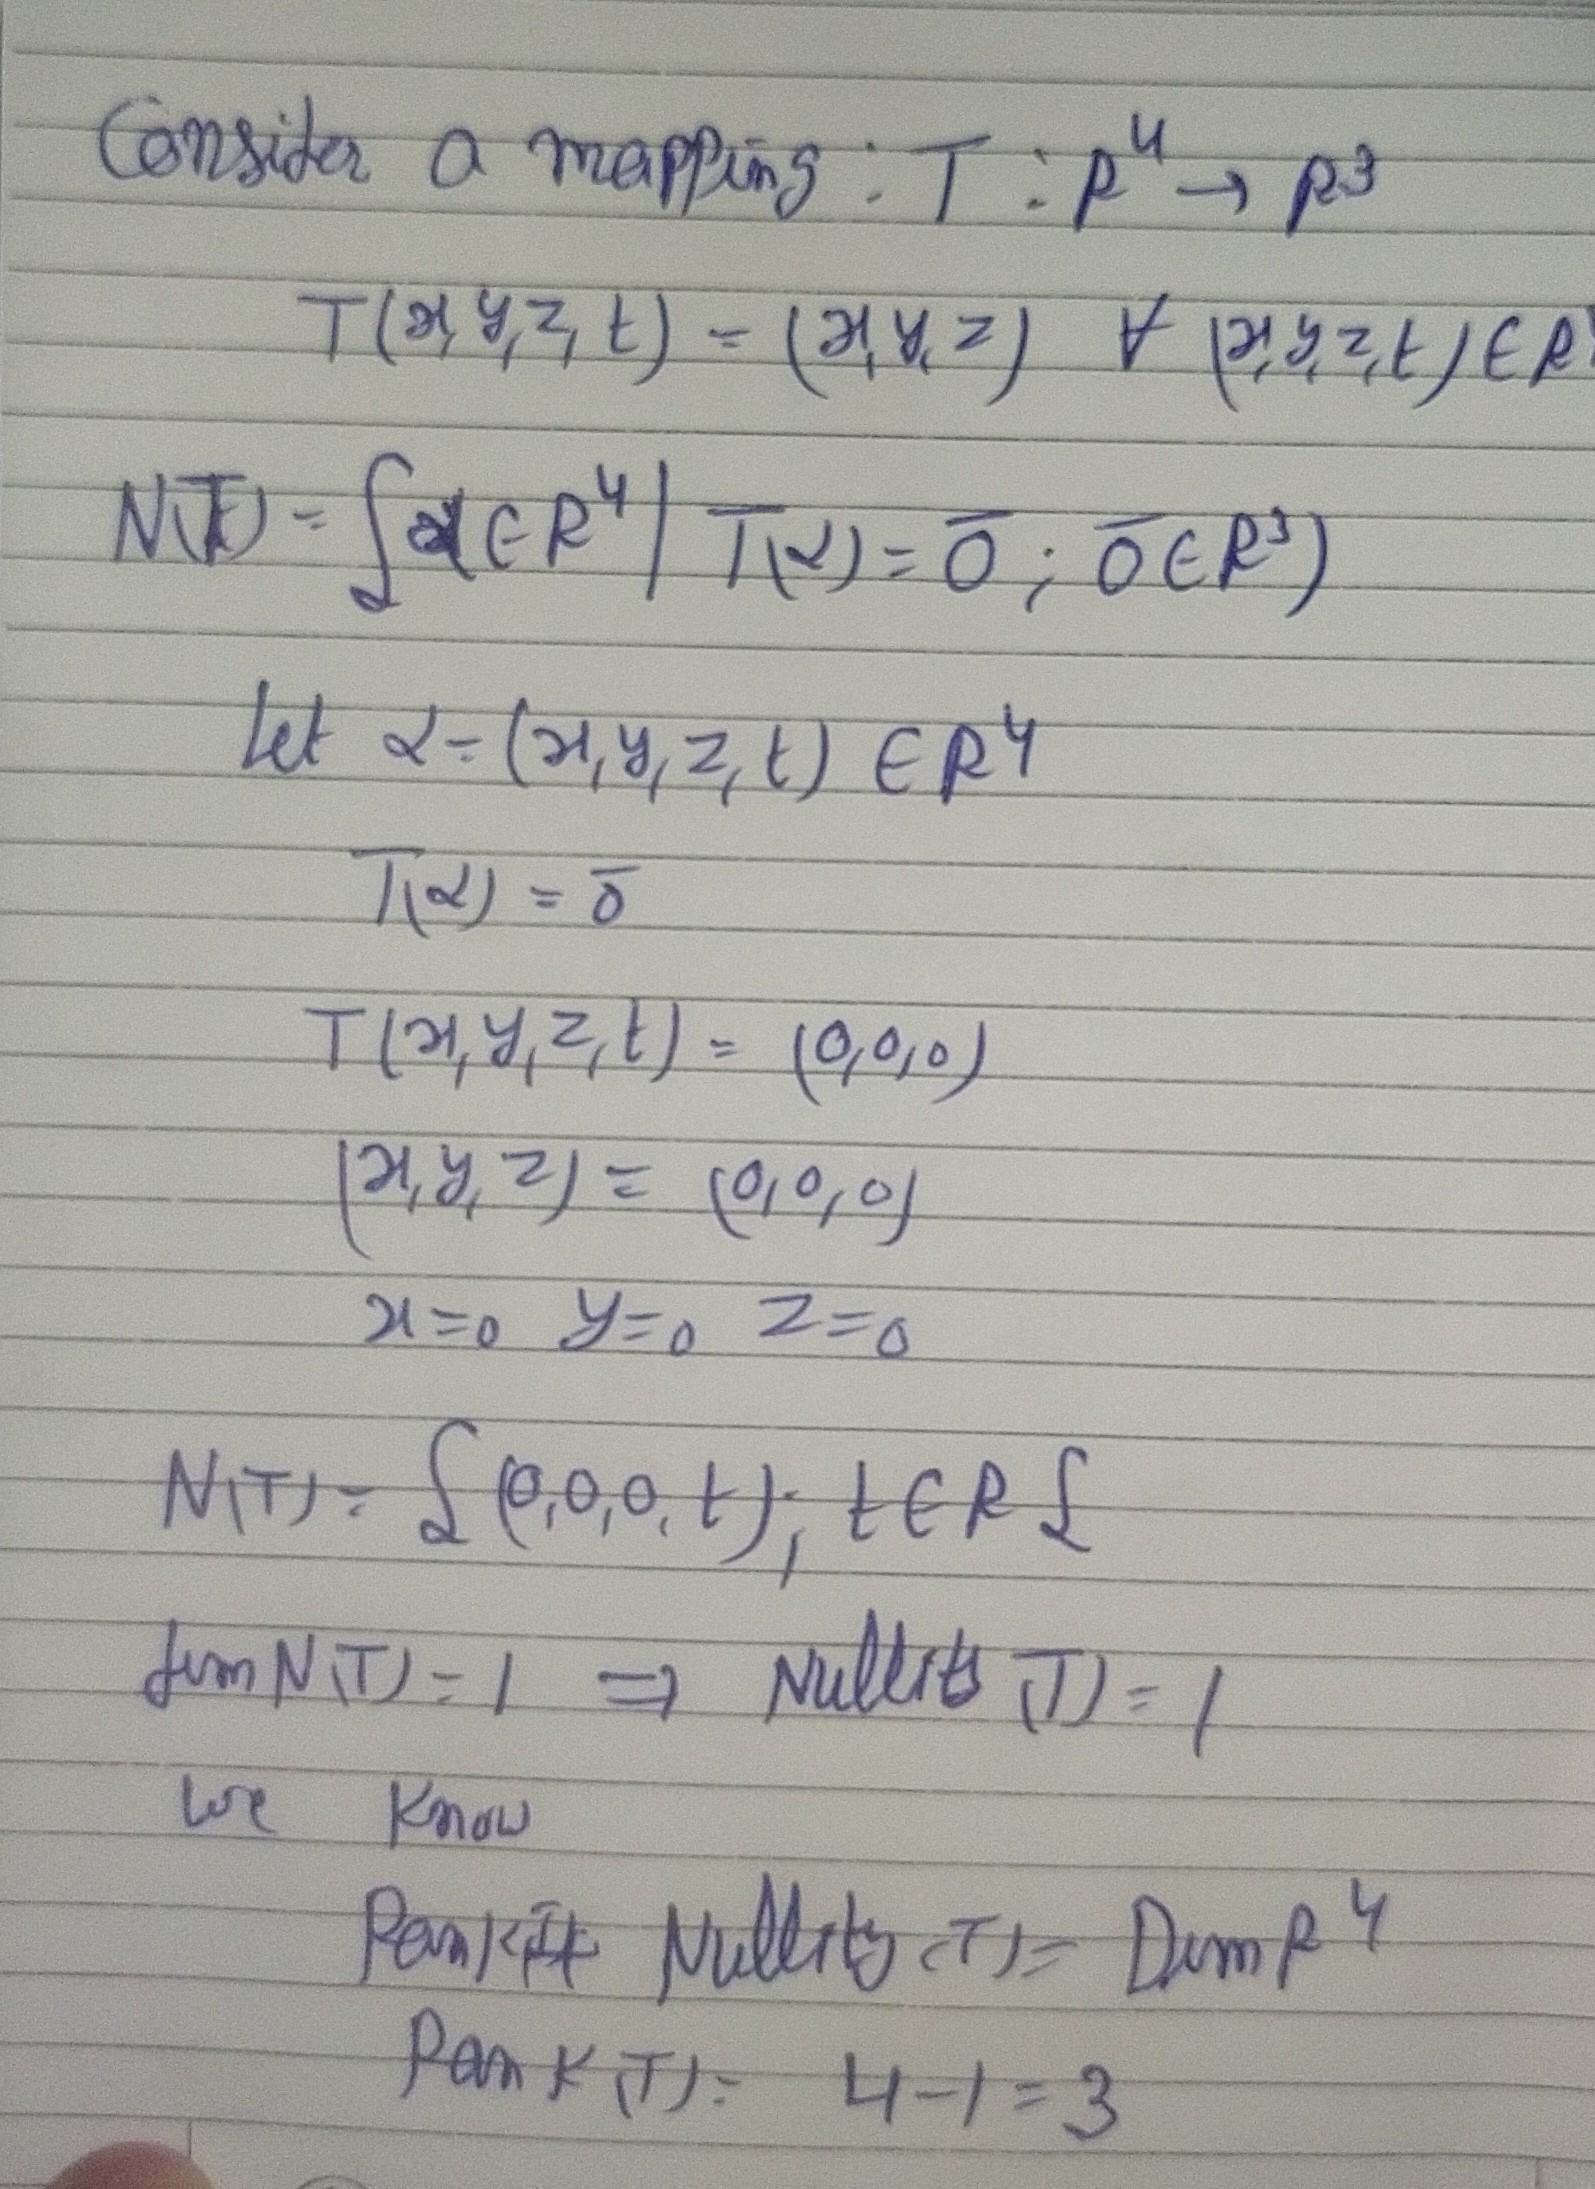 Consider a mapping : T : R⁴ → R³
T(x,y,z,t) = (x,y,z) ∀ (x,y,z,t) ∈ R
N(T) = {α ∈ R⁴ | T(α) = 0̄ ; 0̄ ∈ R³)
Let α = (x,y,z,t) ∈ R⁴
T(α) = 0̄
T(x,y,z,t) = (0,0,0)
(x,y,z) = (0,0,0)
x=0 y=0 z=0
N(T) = {(0,0,0,t); t ∈ R}
dim N(T) = 1 ⇒ Nullity (T) = 1
we know
Rank(T)+ Nullity (T) = Dim R⁴
Rank (T) = 4-1 = 3